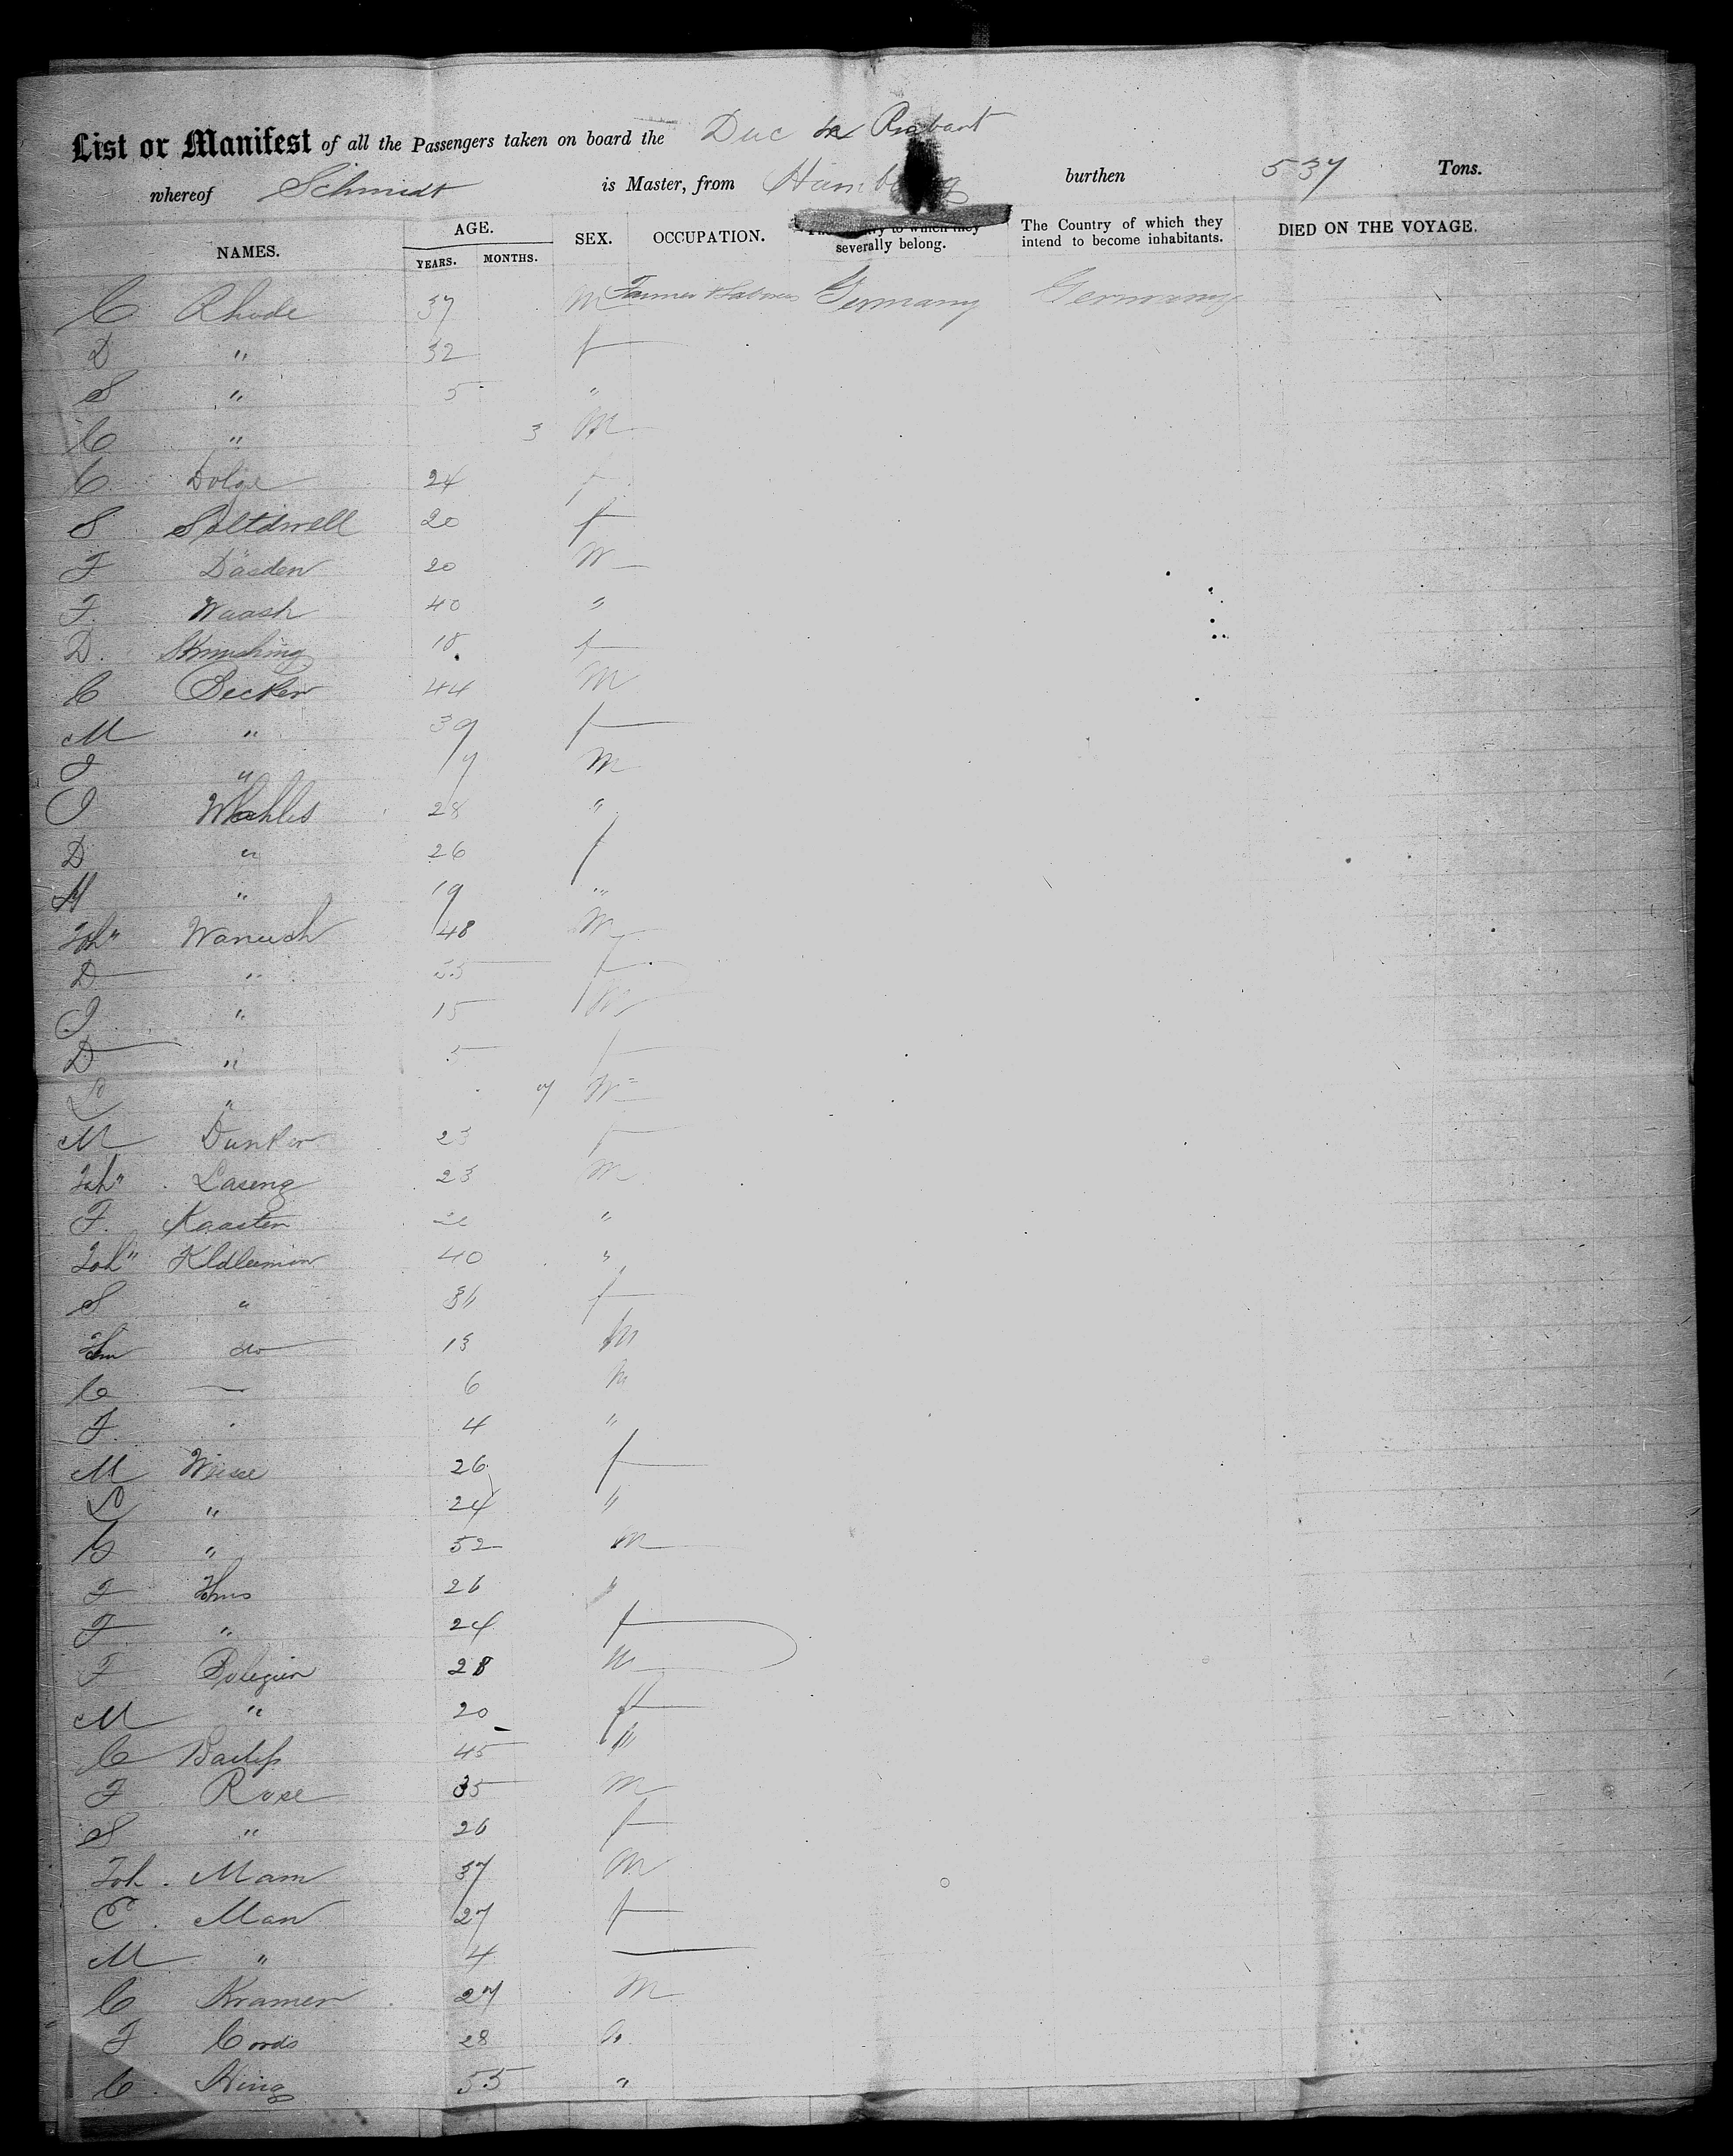 List or Manifest of all the Passengers taken on board the Duc de Brabant
whereof Schmidt is Master, from Hamburg burthen 537 Tons.
NAMES. AGE. YEARS. MONTHS. SEX. OCCUPATION. to which they severally belong. The Country of which they intend to become inhabitants. DIED ON THE VOYAGE.
C Rhode 37 M Farmer & Labourer Germany Germany
D " 32 f
S " 5 "
C " 3 M
C Dolge 24 f
S Soltdwell 20 f
F Däeden 20 M
F. Waash 40 "
D. 18 f
C Becker 44 M
M " 39 f
J " 17 M
J Wahls 28 "
D " 26 f
H " 19 "
Joh" Warnech 48 M
D " 35 f
J " 15 M
D " 5 f
L " 7 M
M Dunker 23 f
Joh" Laseng 23 m
F. Kaasten "
Joh" 40 "
S " 36 f
do 13 M
C — 6 M
F. " 4 "
M Weise 26 f
L " 24 "
G " 52 M
F 26 "
F " 24 f
F 28 M
M " 20 f
C 45 "
F Rose 35 M
S " 26 f
Joh. Mam 37 M
C. Man 27 f
M " 4 —
C Kramer 27 M
F Cords 28
C. King 55 "